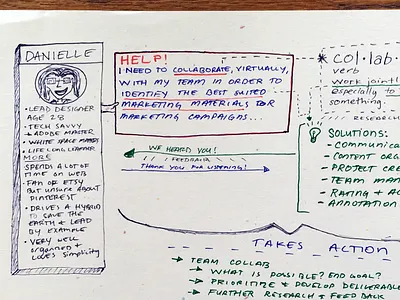 DANIELLE
• LEAD DESIGNER
AGE 28
• TECH SAVVY
+ ADOBE MASTER
• WHITE SPACE MAKER
• LIFE LONG LEARNER
MORE
SPENDS A LOT OF
TIME ON WEB
• FAN OF ETSY
BUT UNSURE ABOUT
PINTEREST
• DRIVES A HYBRID
TO SAVE THE
EARTH & LEAD
BY EXAMPLE
• VERY WELL
organized +
LOVES Simplicity
HELP!
I NEED TO COLLABORATE, VIRTUALLY,
WITH MY TEAM IN ORDER TO
IDENTIFY THE BEST SUITED
MARKETING MATERIALS FOR
MARKETING CAMPAIGNS...
WE HEARD YOU!
FEEDBACK
THANK YOU FOR LISTENING!
* col•lab•
verb
work jointl
especially to
something.
RESEARCH
SOLUTIONS:
- COMMUNICA
- CONTENT ORG
- PROJECT CRE
- TEAM MAN
- RATING + AC
- ANNOTATION
TAKES ACTION
→ TEAM COLLAB
→ WHAT IS POSSIBLE? END GOAL?
→ PRIORITIZE & DEVELOP DELIVERABLE
→ FURTHER RESEARCH + FEEDBACK